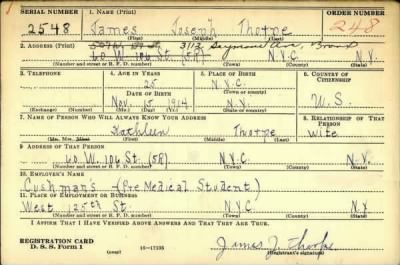 SERIAL NUMBER 1. NAME (Print) ORDER NUMBER
2548 James Joseph Thorpe 248
(First) (Middle) (Last)
2. ADDRESS (Print) 3113 Seymour Ave, Bronx
60 W. 106 St. (58) N.Y.C. N.Y.
(Number and street or R. F. D. number) (Town) (County) (State)
3. TELEPHONE 4. AGE IN YEARS 5. PLACE OF BIRTH 6. COUNTRY OF CITIZENSHIP
25 N.Y.C.
DATE OF BIRTH (Town or county)
Nov. 15 1914 N.Y. U.S.
(Exchange) (Number) (Mo.) (Day) (Yr.) (State or country)
7. NAME OF PERSON WHO WILL ALWAYS KNOW YOUR ADDRESS 8. RELATIONSHIP OF THAT PERSON
Kathleen Thorpe wife
(Mr., Mrs., Miss) (First) (Middle) (Last)
9. ADDRESS OF THAT PERSON
60 W. 106 St. (58) N.Y.C. N.Y.
(Number and street or R. F. D. number) (Town) (County) (State)
10. EMPLOYER'S NAME
Cushman's (Pre Medical Student)
11. PLACE OF EMPLOYMENT OR BUSINESS
West 125th St. N.Y.C. N.Y
(Number and street or R. F. D. number) (Town) (County) (State)
I AFFIRM THAT I HAVE VERIFIED ABOVE ANSWERS AND THAT THEY ARE TRUE.
REGISTRATION CARD
D. S. S. Form 1 16—17105 James J. Thorpe
(Registrant's signature)